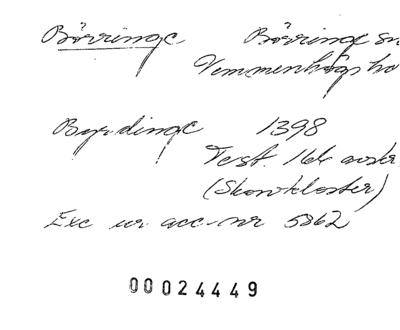 Börringe Börringe sn
Vemmenhögs hd
Byrdinge 1398
Test. 164 avskr.
(Skarokloster)
Exc ur acc-nr 5862
00024449